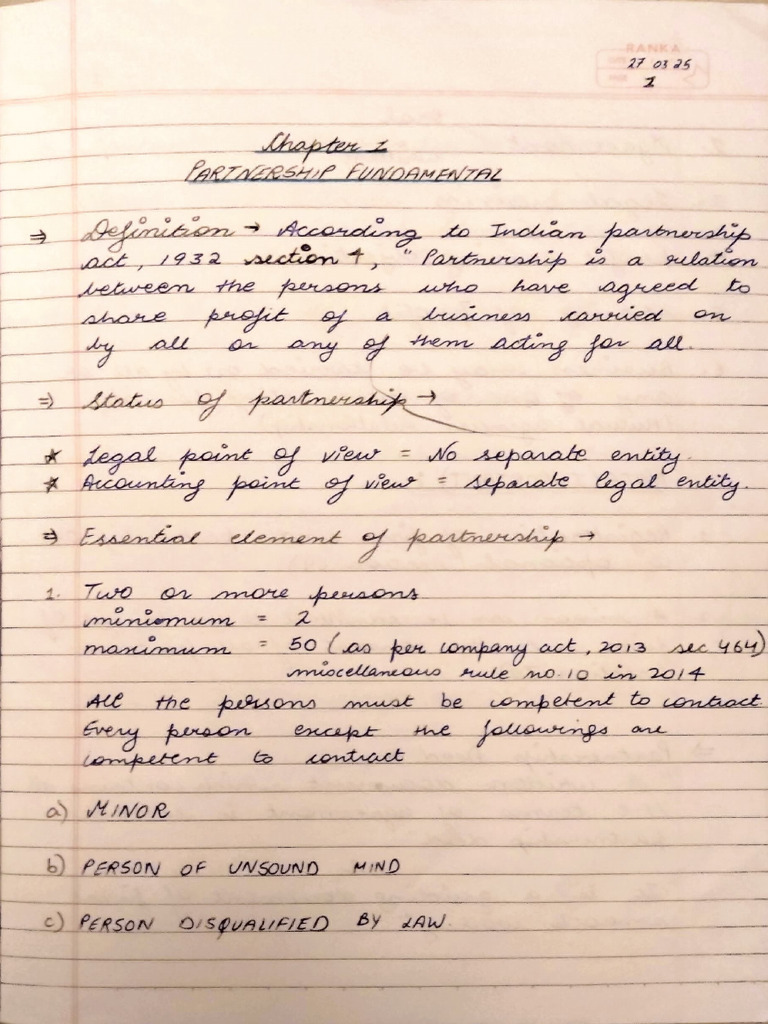 RANKA
27 03 25
1
Chapter 1
PARTNERSHIP FUNDAMENTAL
⇒ Definition → According to Indian partnership
act, 1932 section 4, "Partnership is a relation
between the persons who have agreed to
share profit of a business carried on
by all or any of them acting for all.
⇒ Status of partnership →
★ Legal point of view = No separate entity.
★ Accounting point of view = separate legal entity.
⇒ Essential element of partnership →
1. Two or more persons
miniomum = 2
maximum = 50 (as per company act, 2013 sec 464)
miscellaneous rule no. 10 in 2014
All the persons must be competent to contract.
Every person except the followings are
competent to contract
a) MINOR
b) PERSON OF UNSOUND MIND
c) PERSON DISQUALIFIED BY LAW.